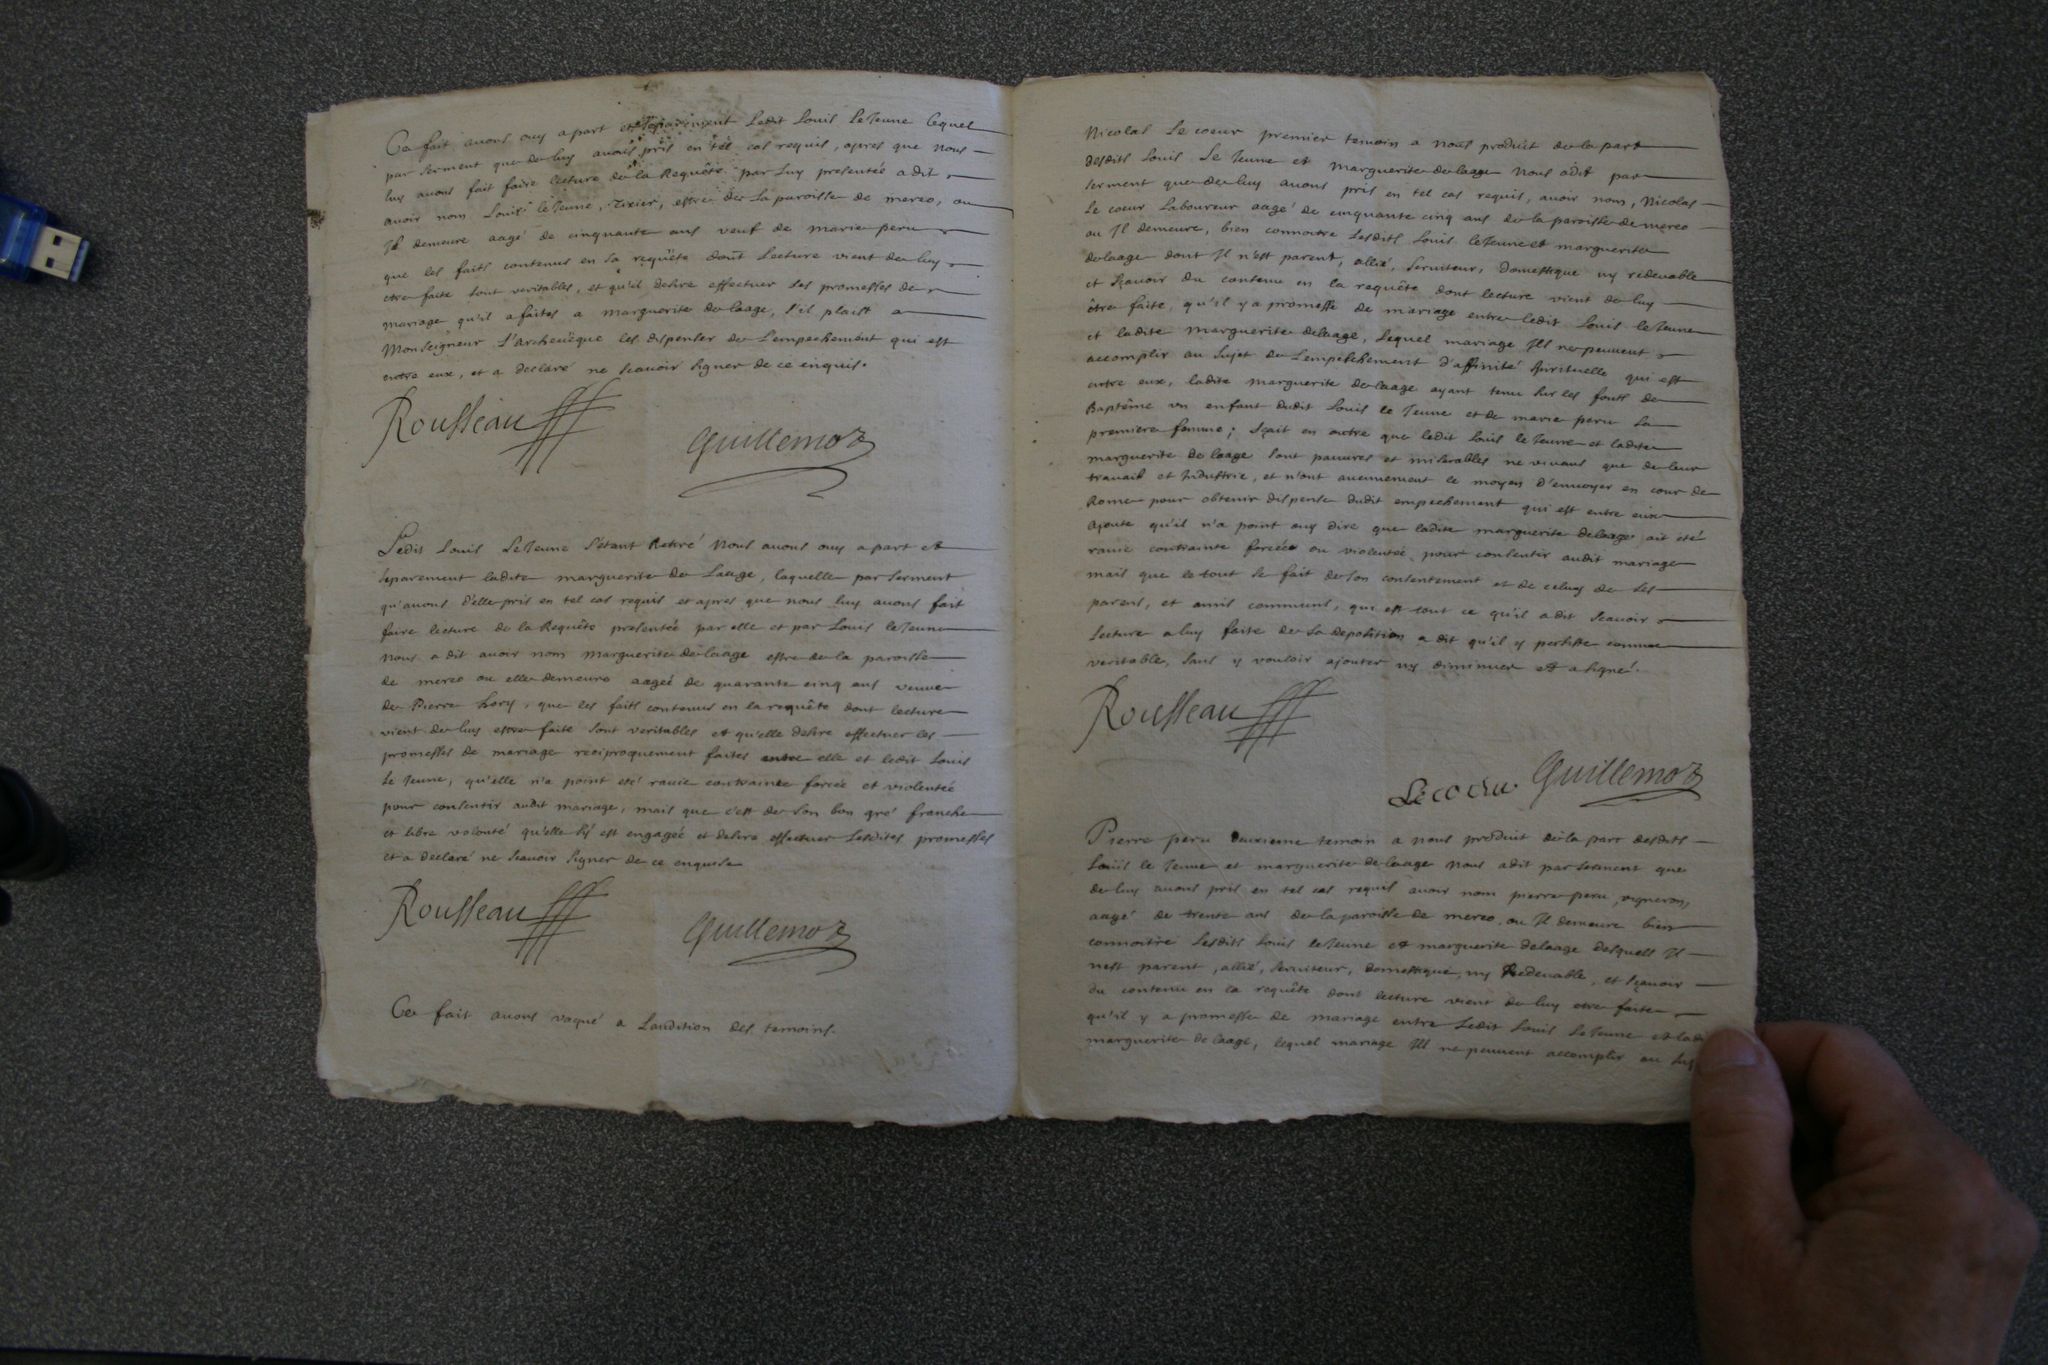 Ce fait avons ouy apart et separement Ledit Louis Le Jeune Lequel
par serment que de luy avons pris en tel cas requis, apres que nous
luy avons fait faire lecture de la Requête par luy presentée a dit
avoir nom Louis le Jeune, Tixier, estre de la paroisse de mereo, ou
Il demeure aagé de cinquante ans veuf de marie peru
que les faits contenus en sa requête dont Lecture vient de luy
etre faite sont veritables, et qu'il desire effectuer les promesses de
mariage qu'il a faites a marguerite de laage, s'il plaist a
Monseigneur L'archevêque les dispenser de L'empechement qui est
entre eux, et a declaré ne scavoir signer de ce enquis.
Rousseau
Guillemoz
Ledit Louis Le Jeune s'étant Retiré Nous avons ouy apart et
separement ladite marguerite de Laage, laquelle par serment
qu'avons d'elle pris en tel cas requis et apres que nous luy avons fait
faire lecture de la Requête presentée par elle et par Louis le Jeune
Nous a dit avoir nom marguerite de laage estre de la paroisse
de mereo ou elle demeure aageé de quarante cinq ans veuve
de Pierre Lory, que les faits contenus en la requête dont lecture
vient de luy estre faite sont veritables et qu'elle desire effectuer les
promesses de mariage reciproquement faites entre elle et ledit Louis
Le Jeune, qu'elle n'a point eté ravie contrainte forcée et violentée
pour consentir audit mariage, mais que c'est de son bon gré franche
et libre volonté qu'elle s'y est engagée et desire effectuer Lesdites promesses
et a declaré ne scavoir signer de ce enquise
Rousseau
Guillemoz
Ce fait avons vaqué a Laudition des temoins.
Nicolas Le coeur premier temoin a Nous produit de la part
desdits Louis Le Jeune et marguerite de laage Nous a dit par
serment que de luy avons pris en tel cas requis, avoir nom, Nicolas
Le coeur Laboureur aagé de cinquante cinq ans de la paroisse de mereo
ou Il demeure, bien connoitre Lesdits Louis le Jeune et marguerite
de laage dont Il n'est parent, allié, serviteur, domestique ny redevable
et sçavoir du contenu en la requête dont lecture vient de luy
être faite, qu'il y a promesse de mariage entre ledit Louis le Jeune
et ladite marguerite de laage, Lequel mariage Ils ne peuvent
accomplir au sujet de L'empêchement d'affinité spirituelle qui est
entre eux, ladite marguerite de laage ayant tenu sur les fonts de
Baptême un enfant dudit Louis le Jeune et de marie peru sa
premiere femme; sçait en outre que ledit Louis le Jeune et ladite
marguerite de laage sont pauvres et miserables ne vivans que de leur
travail et Industrie, et n'ont aucunement le moyen d'envoyer en cour de
Rome pour obtenir dispense dudit empechement qui est entre eux
Ajoute qu'il n'a point ouy dire que ladite marguerite de laage ait eté
ravie contrainte forcée ou violentée pour consentir audit mariage
mais que le tout se fait de son consentement et de celuy de ses
parens, et amis communs, qui est tout ce qu'il a dit scavoir
Lecture a luy faite de sa deposition a dit qu'il y persiste comme
veritable, sans y vouloir ajouter ny diminuer et a signé.
Rousseau
Lecoeur Guillemoz
Pierre peru deuxieme temoin a nous produit de la part desdits
Louis le Jeune et marguerite de laage Nous a dit par serment que
de luy avons pris en tel cas requis avoir nom pierre peru, vigneron,
aagé de trente ans de la paroisse de mereo, ou Il demeure bien
connoitre Lesdits Louis le Jeune et marguerite de laage desquels Il
n'est parent, allié, serviteur, domestique, ny Redevable, et sçavoir
du contenu en la requête dont lecture vient de luy etre faite
qu'il y a promesse de mariage entre Ledit Louis Le Jeune et
marguerite de laage, lequel mariage Ils ne peuvent accomplir au